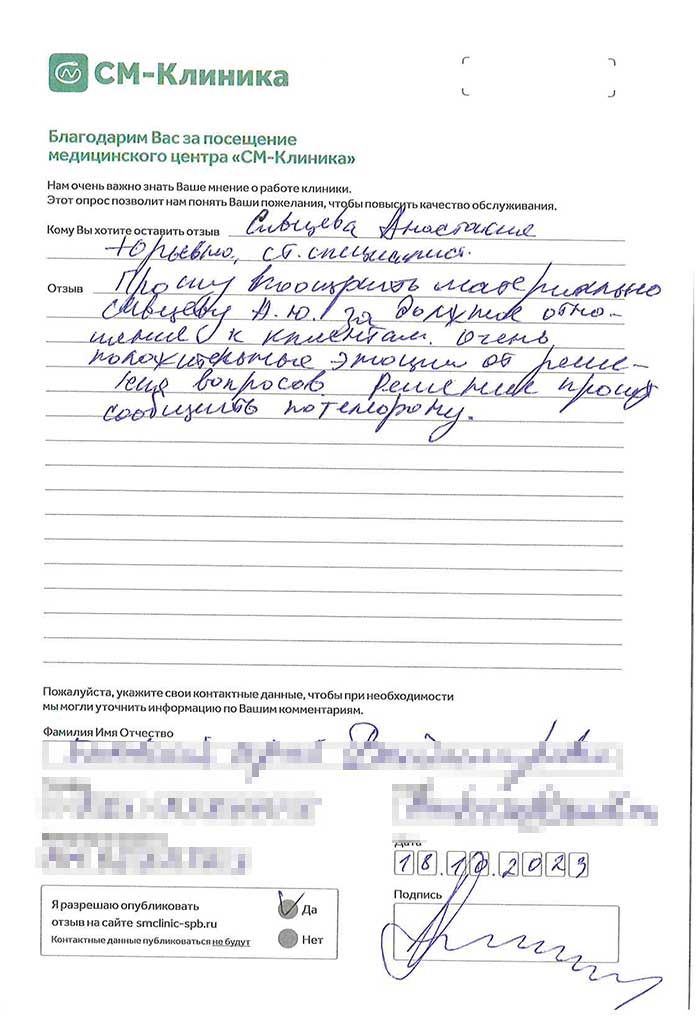 СМ-Клиника
Благодарим Вас за посещение
медицинского центра «СМ-Клиника»
Нам очень важно знать Ваше мнение о работе клиники.
Этот опрос позволит нам понять Ваши пожелания, чтобы повысить качество обслуживания.
Кому Вы хотите оставить отзыв Сивцева Анастасия
Юрьевна, ст. специалист.
Отзыв Прошу поощрить материально
Сивцеву А.Ю. за должное отно-
шение к клиентам. Очень
положительные эмоции от реше-
ния вопросов. Решение прошу
сообщить по телефону.
Пожалуйста, укажите свои контактные данные, чтобы при необходимости
мы могли уточнить информацию по Вашим комментариям.
Фамилия Имя Отчество
Дата
18.10.2023
Я разрешаю опубликовать
отзыв на сайте smclinic-spb.ru
Контактные данные публиковаться не будут
Да
Нет
Подпись